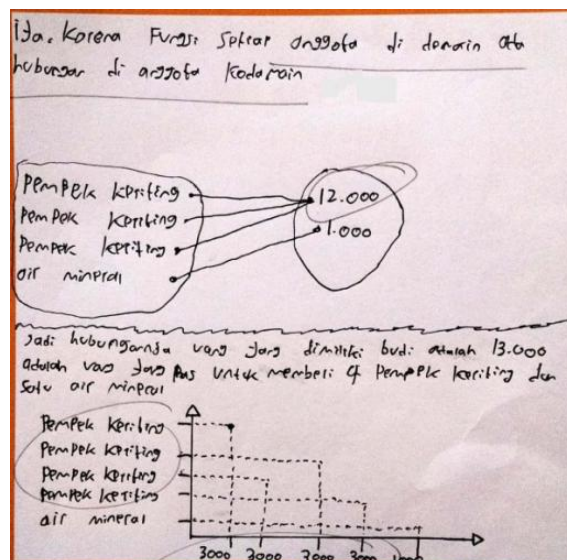 Iya. Karena Fungsi setiap anggota di domain ada
hubungan di anggota Kodomain
Pempek keriting 12.000
Pempek keriting 1.000
Pempek keriting
air mineral
Jadi hubungannya uang yang dimiliki budi adalah 13.000
adalah uang yang pas untuk membeli 4 Pempek keriting dan
satu air mineral
Pempek keriting
Pempek keriting
Pempek keriting
Pempek keriting
air mineral
3000 3000 3000 3000 1000